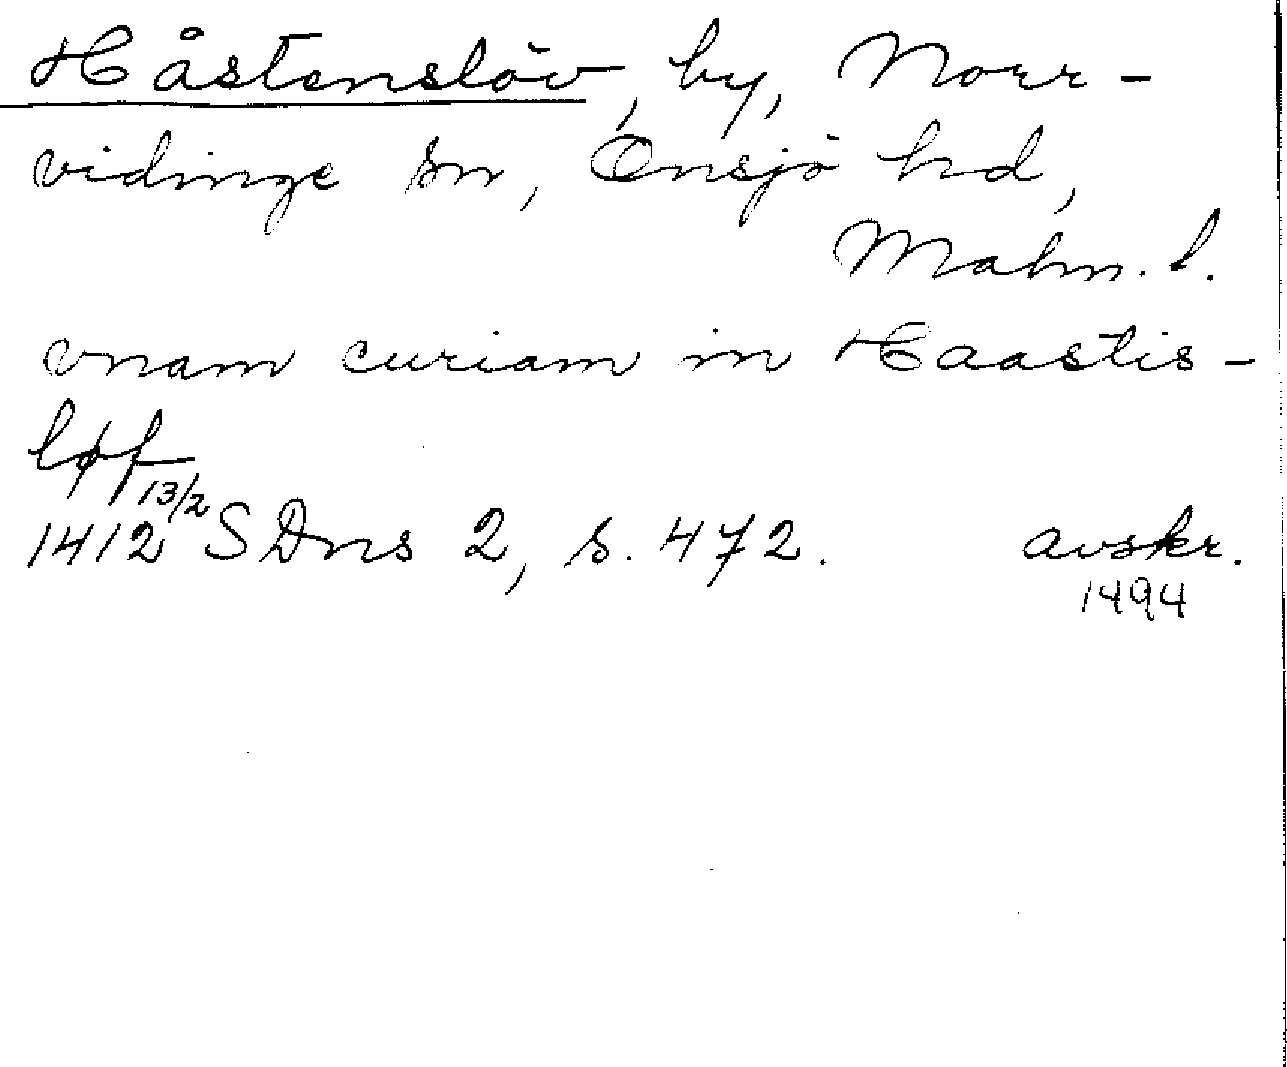 Håstenslöv, by, Norr-
vidinge sn, Onsjö hd,
Malm. l.
vnam curiam in Haastis-
løf
1412 13/2 SDns 2, s. 472. avskr.
1494